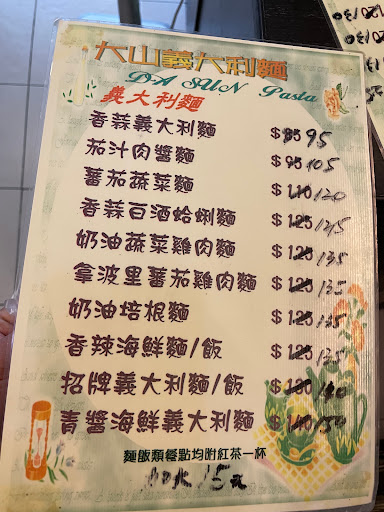 大山義大利麵
DA SUN Pasta
義大利麵
香蒜義大利麵 $85 95
茄汁肉醬麵 $95 105
蕃茄蔬菜麵 $110 120
香蒜白酒蛤蜊麵 $125
奶油蔬菜雞肉麵 $125 135
拿波里蕃茄雞肉麵 $125 135
奶油培根麵 $125 135
香辣海鮮麵/飯 $125 135
招牌義大利麵/飯 $130 140
青醬海鮮義大利麵 $140 150
麵飯類餐點均附紅茶一杯
加 15元